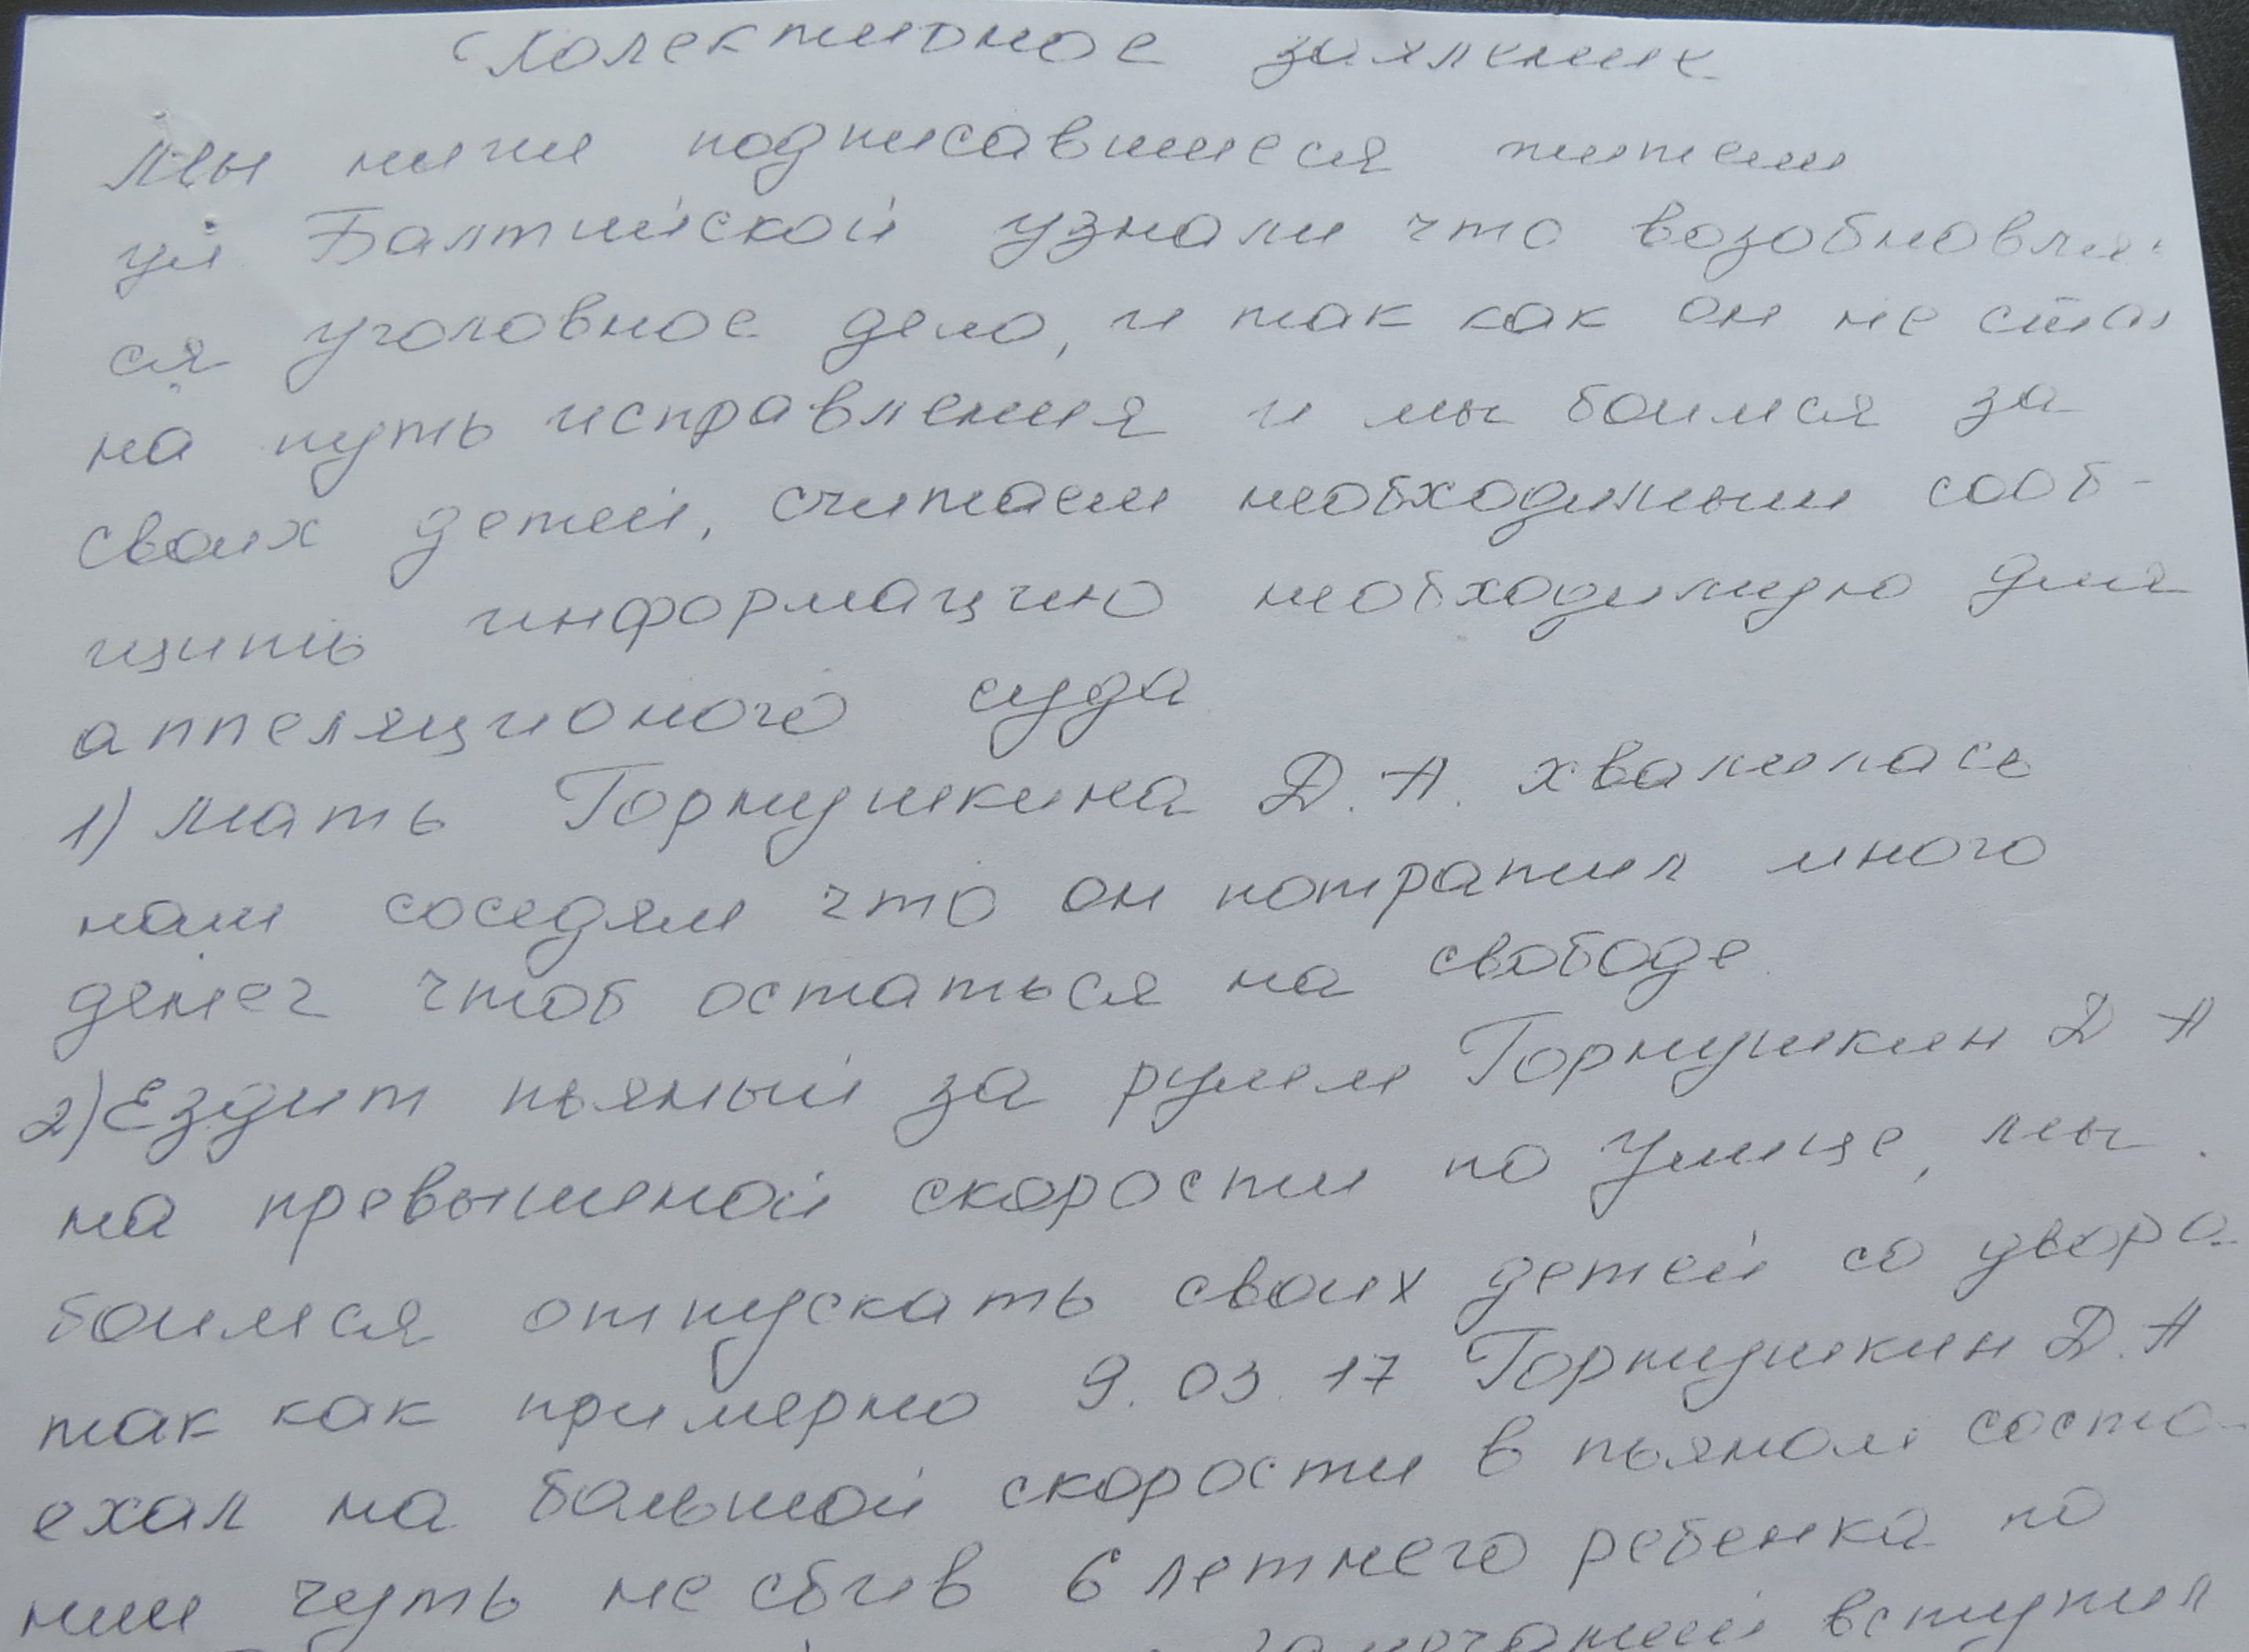 Колективное заявление
Мы ниже подписавшиеся жители
ул Балтийской узнали что возобновляе
ся уголовное дело, и так как он не стал
на путь исправления и мы боимся за
своих детей, считаем необходимым сооб-
щить информацию необходимую для
аппеляционого суда
1) Мать Гормушкина Д.А. хвалилась
нам соседям что он потратил много
денег чтоб остаться на свободе
2) Ездит пьяный за рулем Гормушкин Д А
на превышеной скорости по Улице, мы
боимся отпускать своих детей со двора
так как примерно 9.03.17 Гормушкин Д.А
ехал на большой скорости в пьяном состо-
нии чуть не сбив 6 летнего ребенка по
вступил